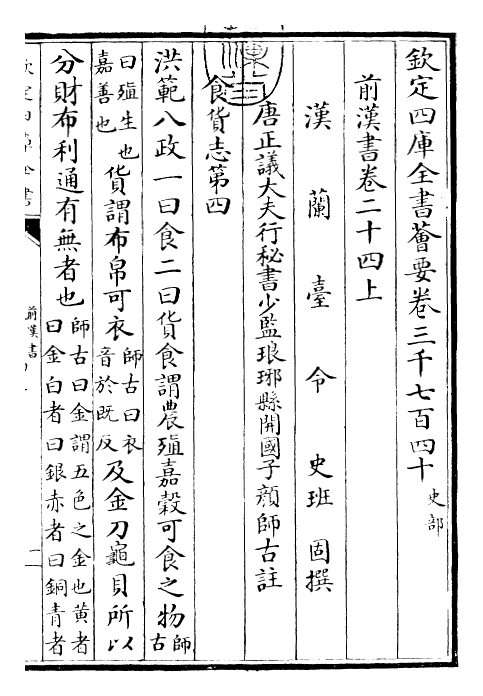 欽定四庫全書薈要卷三千七百四十 史部
前漢書卷二十四上
漢蘭臺令史班固撰
唐正議大夫行秘書少監琅琊縣開國子顏師古註
食貨志第四
洪範八政一曰食二曰貨食謂農殖嘉穀可食之物師古
曰殖生也嘉善也貨謂布帛可衣師古曰衣音於既反及金刀龜貝所以
分財布利通有無者也師古曰金謂五色之金也黄者曰金白者曰銀赤者曰銅青者
前漢書